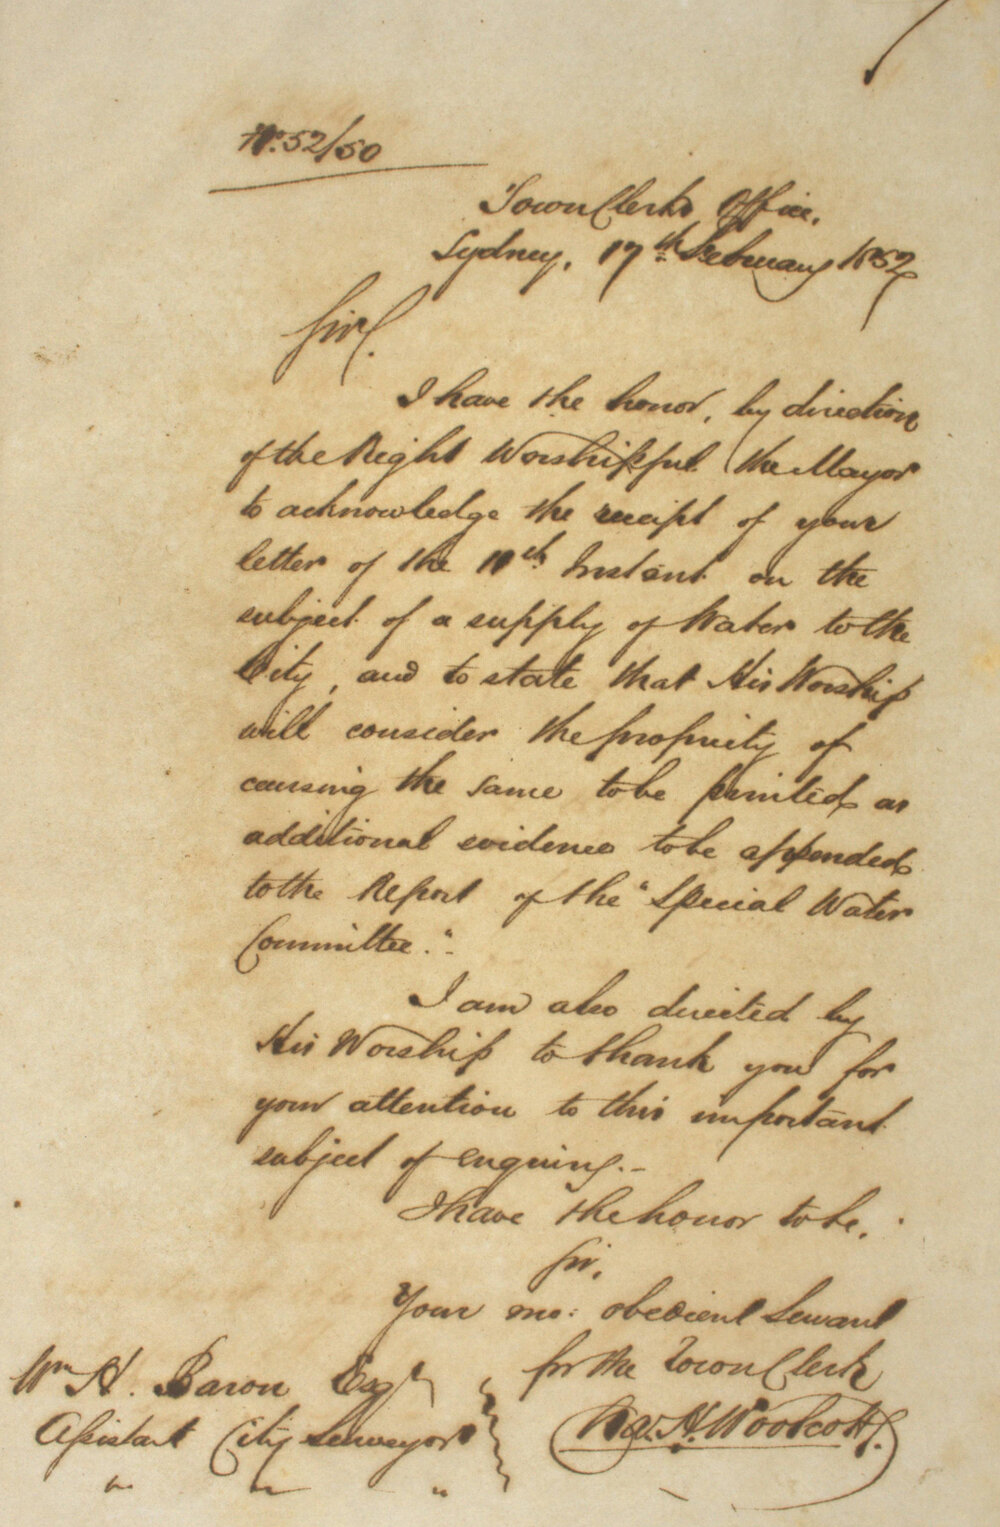 No. 52/50
Town Clerk's Office,
Sydney, 17th February 1852
Sir,
I have the honor, by direction
of the Right Worshipful the Mayor
to acknowledge the receipt of your
letter of the 11th Instant on the
subject of a supply of Water to the
City, and to state that His Worship
will consider the propriety of
causing the same to be printed as
additional evidence to be appended
to the Report of the "Special Water
Committee."
I am also directed by
His Worship to thank you for
your attention to this important
subject of enquiry.-
I have the honor to be,
Sir,
Your mo: obedient Servant
for the Town Clerk
H. Woolcott
Wm H. Baron Esqr
Assistant City Surveyor
" " "